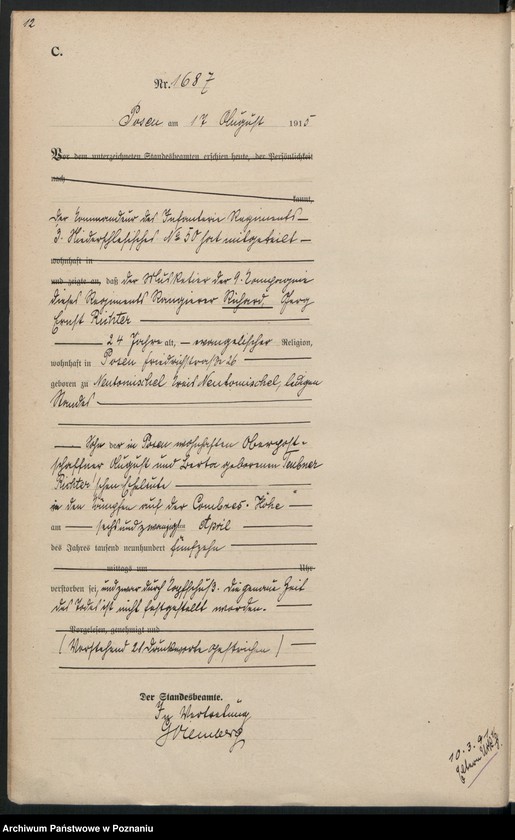 12
C.
Nr. 1687
Posen am 17 August 1915
Vor dem unterzeichneten Standesbeamten erschien heute, der Persönlichkeit
nach
kannt,
der Kommandeur des Infanterie Regiments
3. Niederschlesisches No 50 hat mitgeteilt
wohnhaft in
und zeigte an, daß der Musketier der 9. Compagnie
dieses Regiments Rangierer Richard Georg
Ernst Richter
24 Jahre alt, evangelischer Religion,
wohnhaft in Posen Friedrichstraße 26
geboren zu Neutomischel Kreis Neutomischel, ledigen
Standes
Sohn der in Posen wohnhaften Oberpost-
schaffner August und Berta geborenen Teubner
Richter'schen Eheleute
in den Kämpfen auf der Combres-Höhe
am sechsundzwanzigsten April
des Jahres tausend neunhundert fünfzehn
mittags um Uhr
verstorben sei, und zwar durch Kopfschuß. Die genaue Zeit
des Todes ist nicht festgestellt worden.
Vorgelesen, genehmigt und
(Vorstehend 21 Druckworte gestrichen)
Der Standesbeamte.
In Vertretung
10.3.9
Archiwum Państwowe w Poznaniu